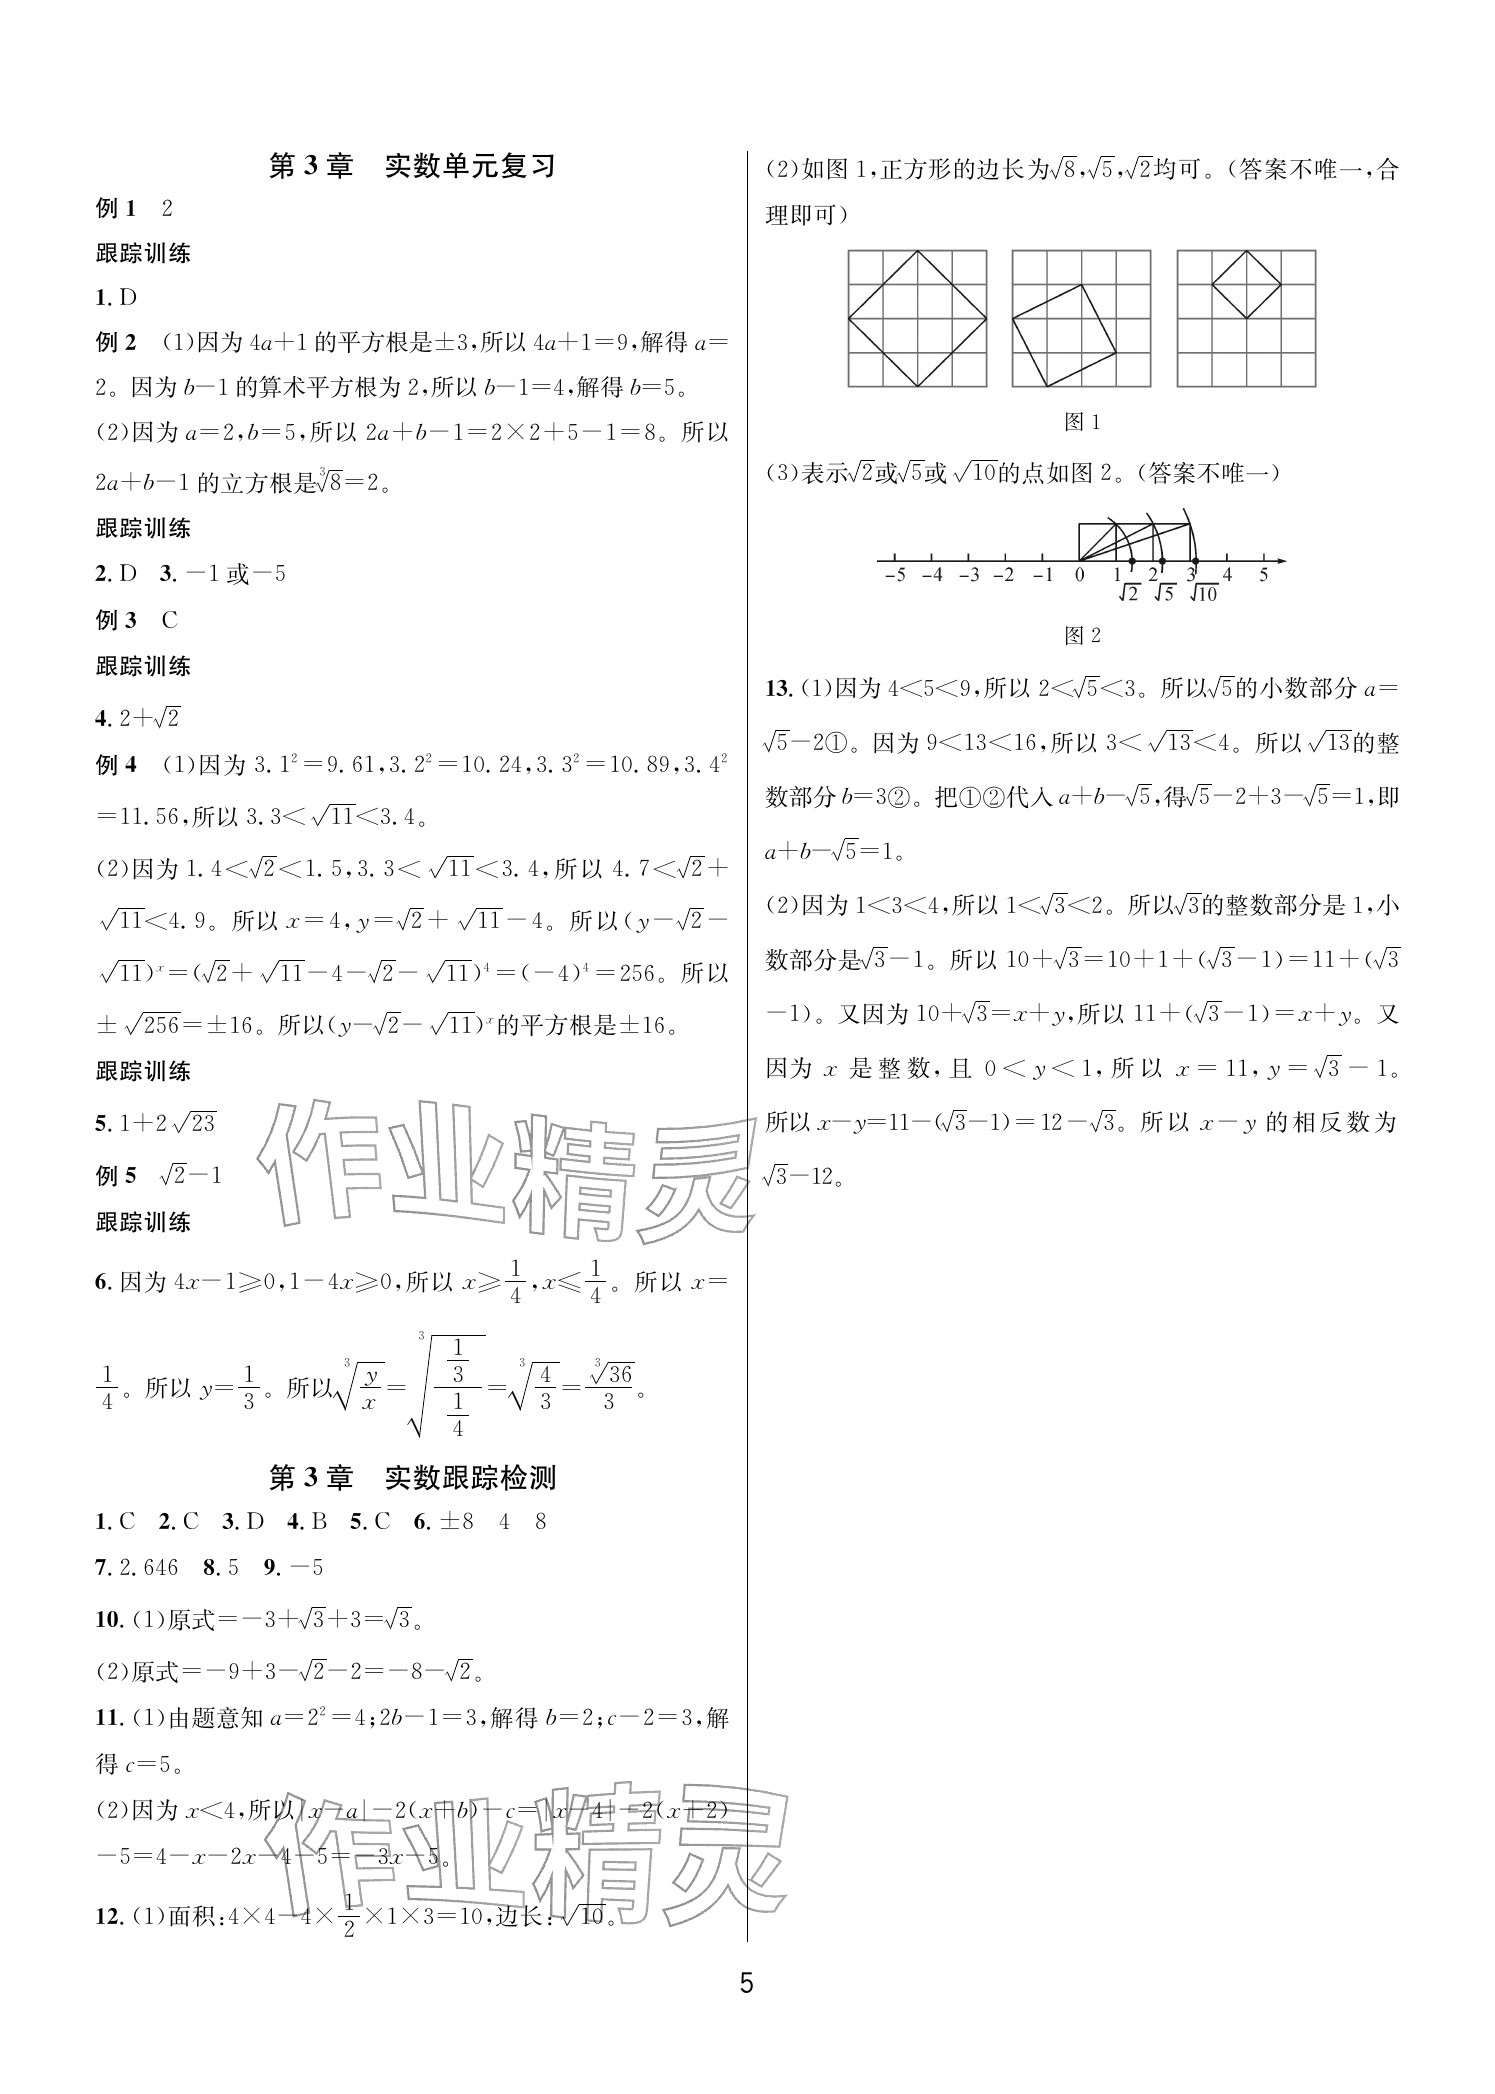 第 3 章　实数单元复习
例 1　2
跟踪训练
1. D
例 2　(1)因为 4a+1 的平方根是±3,所以 4a+1=9,解得 a=
2。因为 b-1 的算术平方根为 2,所以 b-1=4,解得 b=5。
(2)因为 a=2,b=5,所以 2a+b-1=2×2+5-1=8。所以
2a+b-1 的立方根是∛8=2。
跟踪训练
2. D　3. -1 或-5
例 3　C
跟踪训练
4. 2+√2
例 4　(1)因为 3.1²=9.61,3.2²=10.24,3.3²=10.89,3.4²
=11.56,所以 3.3<√11<3.4。
(2)因为 1.4<√2<1.5,3.3<√11<3.4,所以 4.7<√2+
√11<4.9。所以 x=4,y=√2+√11-4。所以(y-√2-
√11)ˣ=(√2+√11-4-√2-√11)⁴=(-4)⁴=256。所以
±√256=±16。所以(y-√2-√11)ˣ的平方根是±16。
跟踪训练
5. 1+2√23
例 5　√2-1
跟踪训练
6. 因为 4x-1≥0,1-4x≥0,所以 x≥1/4,x≤1/4。所以 x=
1/4。所以 y=1/3。所以∛(y/x)=∛((1/3)/(1/4))=∛(4/3)=∛36/3。
第 3 章　实数跟踪检测
1. C　2. C　3. D　4. B　5. C　6. ±8　4　8
7. 2.646　8. 5　9. -5
10. (1)原式=-3+√3+3=√3。
(2)原式=-9+3-√2-2=-8-√2。
11. (1)由题意知 a=2²=4;2b-1=3,解得 b=2;c-2=3,解
得 c=5。
(2)因为 x<4,所以|x-a|-2(x+b)-c=|x-4|-2(x+2)
-5=4-x-2x-4-5=-3x-5。
12. (1)面积:4×4-4×1/2×1×3=10,边长:√10。
(2)如图 1,正方形的边长为√8,√5,√2均可。(答案不唯一,合
理即可)
图 1
(3)表示√2或√5或√10的点如图 2。(答案不唯一)
-5 -4 -3 -2 -1 0 1 2 3 4 5
√2 √5 √10
图 2
13. (1)因为 4<5<9,所以 2<√5<3。所以√5的小数部分 a=
√5-2①。因为 9<13<16,所以 3<√13<4。所以√13的整
数部分 b=3②。把①②代入 a+b-√5,得√5-2+3-√5=1,即
a+b-√5=1。
(2)因为 1<3<4,所以 1<√3<2。所以√3的整数部分是 1,小
数部分是√3-1。所以 10+√3=10+1+(√3-1)=11+(√3
-1)。又因为 10+√3=x+y,所以 11+(√3-1)=x+y。又
因为 x 是整数,且 0<y<1,所以 x=11,y=√3-1。
所以 x-y=11-(√3-1)=12-√3。所以 x-y 的相反数为
√3-12。
作业精灵
作业精灵
5